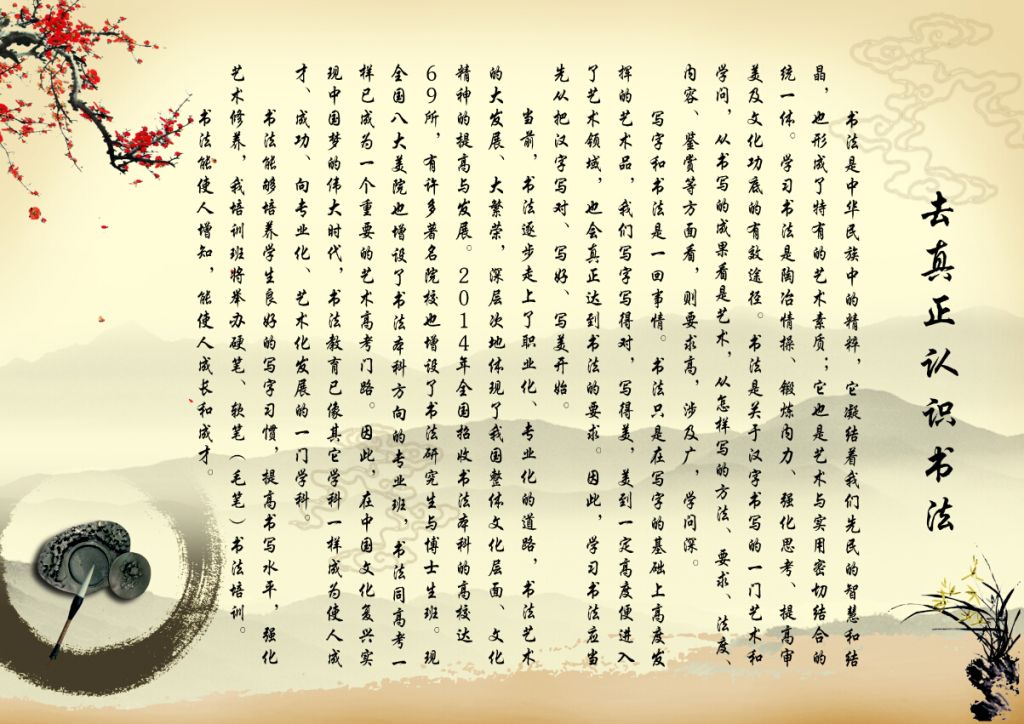 去真正认识书法
书法是中华民族中的精粹，它凝结着我们先民的智慧和结
晶，也形成了特有的艺术素质；它也是艺术与实用密切结合的
统一体。学习书法是陶冶情操、锻炼内力、强化思考、提高审
美及文化功底的有效途径。书法是关于汉字书写的一门艺术和
学问，从书写的成果看是艺术，从怎样写的方法、要求、法度、
内容、鉴赏等方面看，则要求高，涉及广，学问深。
写字和书法是一回事情。书法只是在写字的基础上高度发
挥的艺术品，我们写字写得对，写得美，美到一定高度便进入
了艺术领域，也会真正达到书法的要求。因此，学习书法应当
先从把汉字写对、写好、写美开始。
当前，书法逐步走上了职业化、专业化的道路，书法艺术
的大发展、大繁荣，深层次地体现了我国整体文化层面、文化
精神的提高与发展。2014年全国招收书法本科的高校达
69所，有许多著名院校也增设了书法研究生与博士生班。现
全国八大美院也增设了书法本科方向的专业班，书法同高考一
样已成为一个重要的艺术高考门路。因此，在中国文化复兴实
现中国梦的伟大时代，书法教育已像其它学科一样成为使人成
才、成功、向专业化、艺术化发展的一门学科。
书法能够培养学生良好的写字习惯，提高书写水平，强化
艺术修养，我培训班将举办硬笔、软笔（毛笔）书法培训。
书法能使人增知，能使人成长和成才。